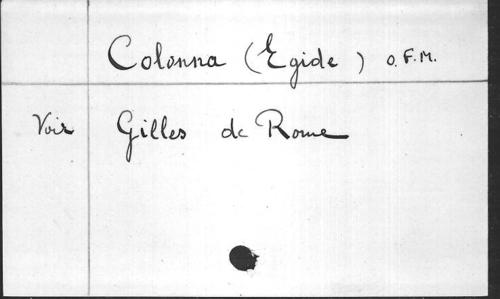 Colonna (Egide) O.F.M.
Voir Gilles de Rome